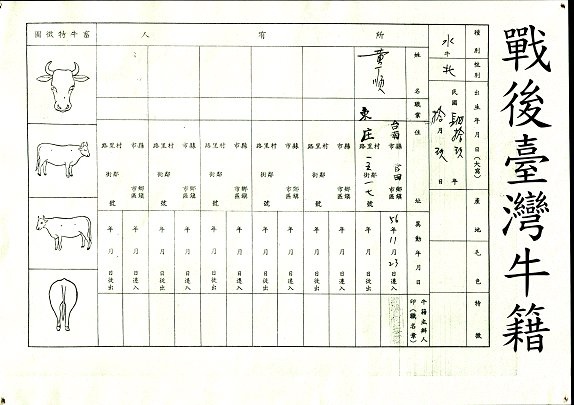 戰後臺灣牛籍
種別 性別 出生年月日(大寫) 產地 毛色 特徵
水牛 牝 民國 年 拾月 玖日
所有人
姓名 職業 住址 異動年月日 牛籍主辦人印(職名章)
黃丁順
台南 縣市 官田 鄉鎮市區 56年11月23日遷入
東庄 村里路 鄰街 號 年月日徙出
縣市 鄉鎮市區 年月日遷入
村里路 鄰街 號 年月日徙出
縣市 鄉鎮市區 年月日遷入
村里路 鄰街 號 年月日徙出
縣市 鄉鎮市區 年月日遷入
村里路 鄰街 號 年月日徙出
縣市 鄉鎮市區 年月日遷入
村里路 鄰街 號 年月日徙出
畜牛特徵圖